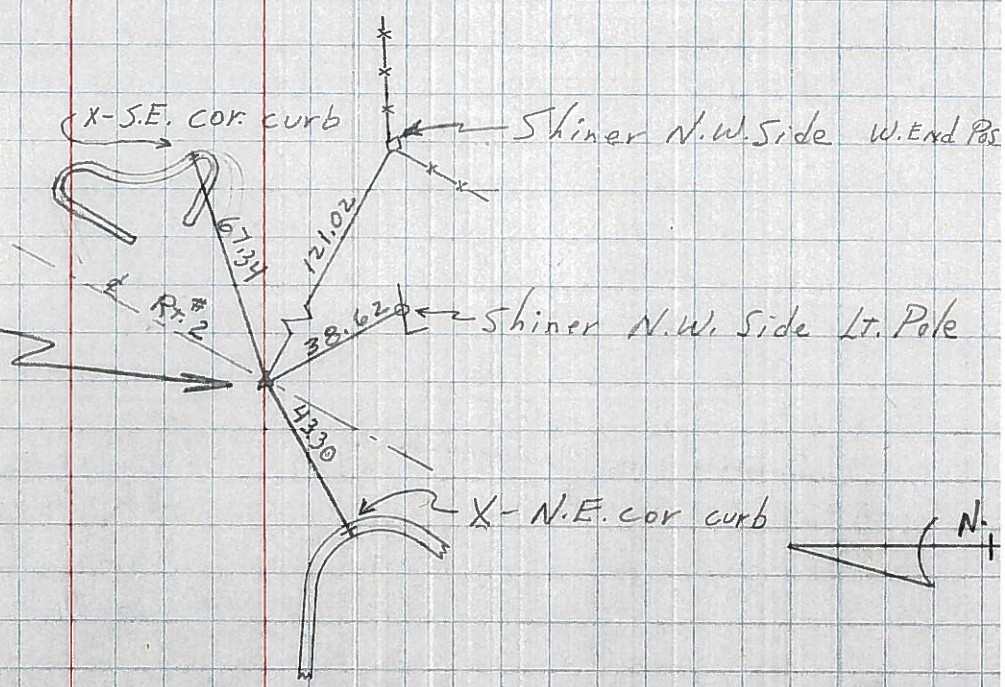 X-S.E. cor. curb
Shiner N.W. Side W. End Pos
67.34
121.02
℄ Rx. #2
38.62
Shiner N.W. Side Lt. Pole
43.30
X- N.E. cor curb
N.